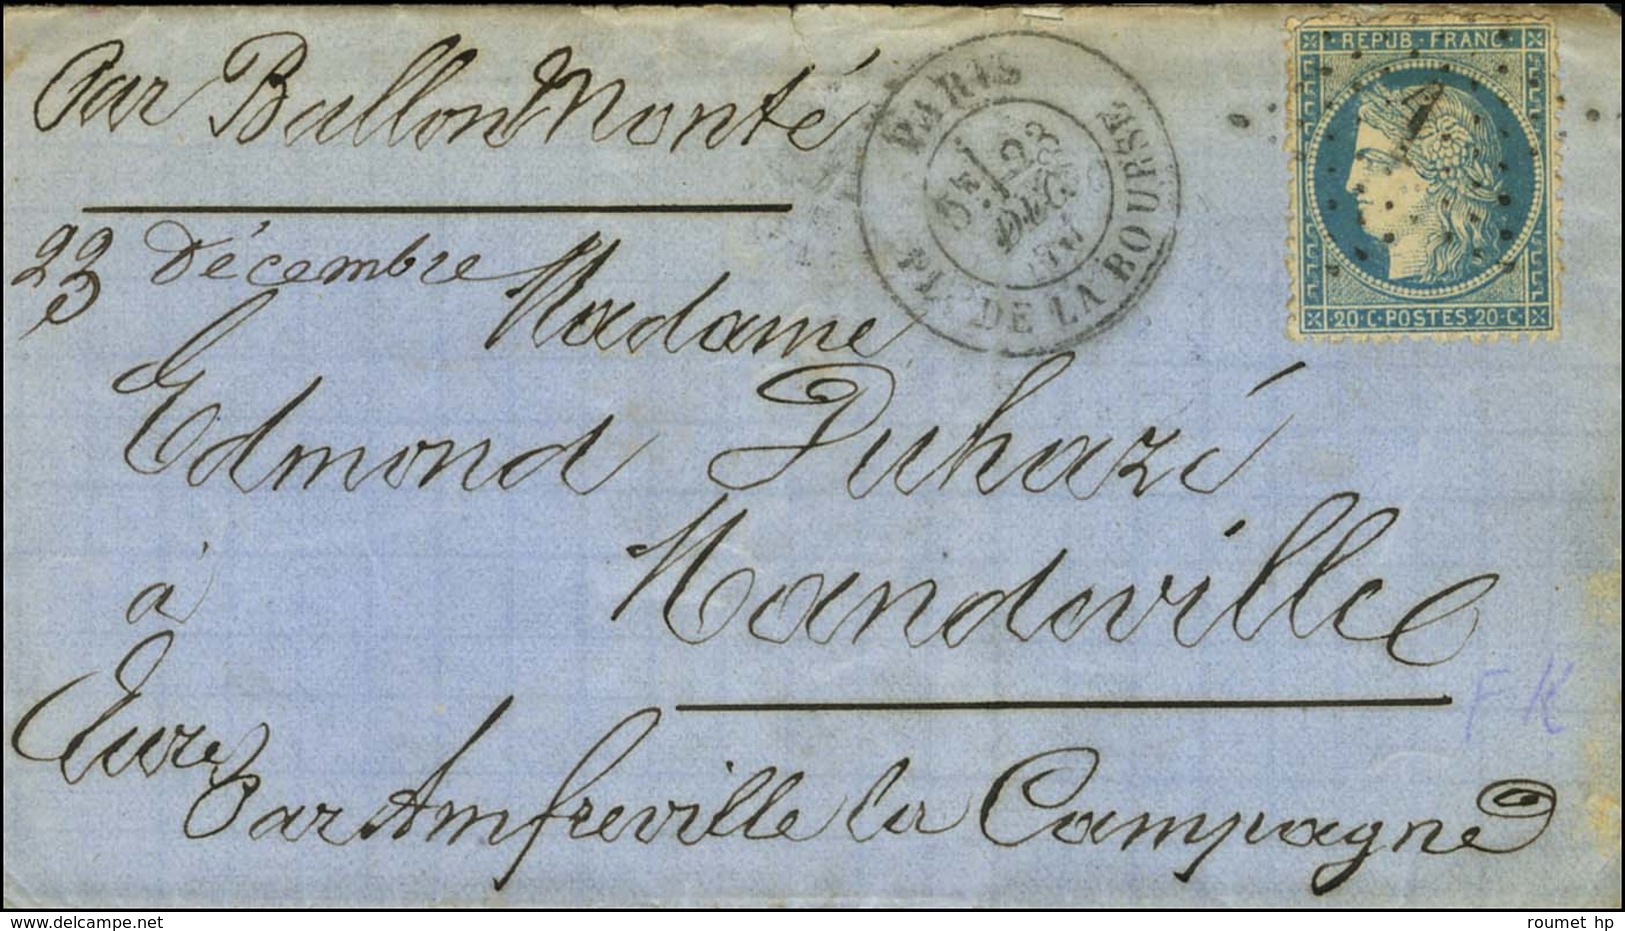 Par Ballon Monté
23 Décembre
Madame
Edmond Duhazé
à Mandeville
Eure
Par Amfreville la Campagne
PARIS
23
DEC.
PL. DE LA BOURSE
REPUB. FRANC.
1
20·C·POSTES·20·C·
FK
© delcampe.net
roumet hp